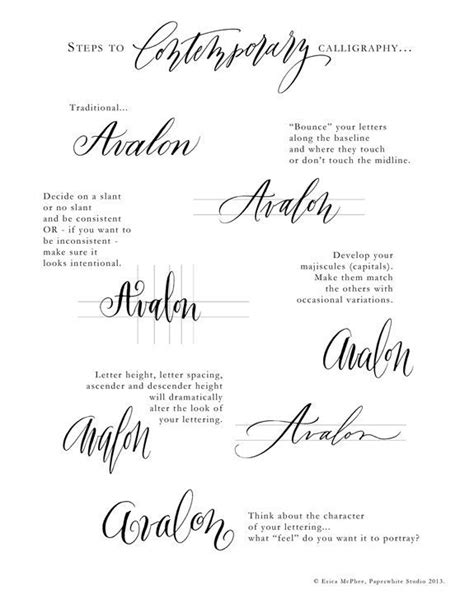 STEPS TO Contemporary CALLIGRAPHY...
Traditional...
Avalon
"Bounce" your letters
along the baseline
and where they touch
or don't touch the midline.
Avalon
Decide on a slant
or no slant
and be consistent
OR - if you want to
be inconsistent -
make sure it
looks intentional.
Avalon
Develop your
majiscules (capitals).
Make them match
the others with
occasional variations.
Avalon
Letter height, letter spacing,
ascender and descender height
will dramatically
alter the look of
your lettering.
Avalon
Avalon
Avalon
Think about the character
of your lettering...
what "feel" do you want it to portray?
© Erica McPhee, Paperwhite Studio 2013.